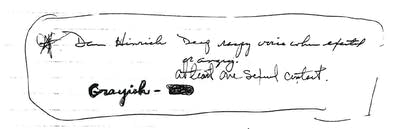 Dan Hinrich Deep raspy voice when excited
or angry.
At least one sexual contact.
Grayish -